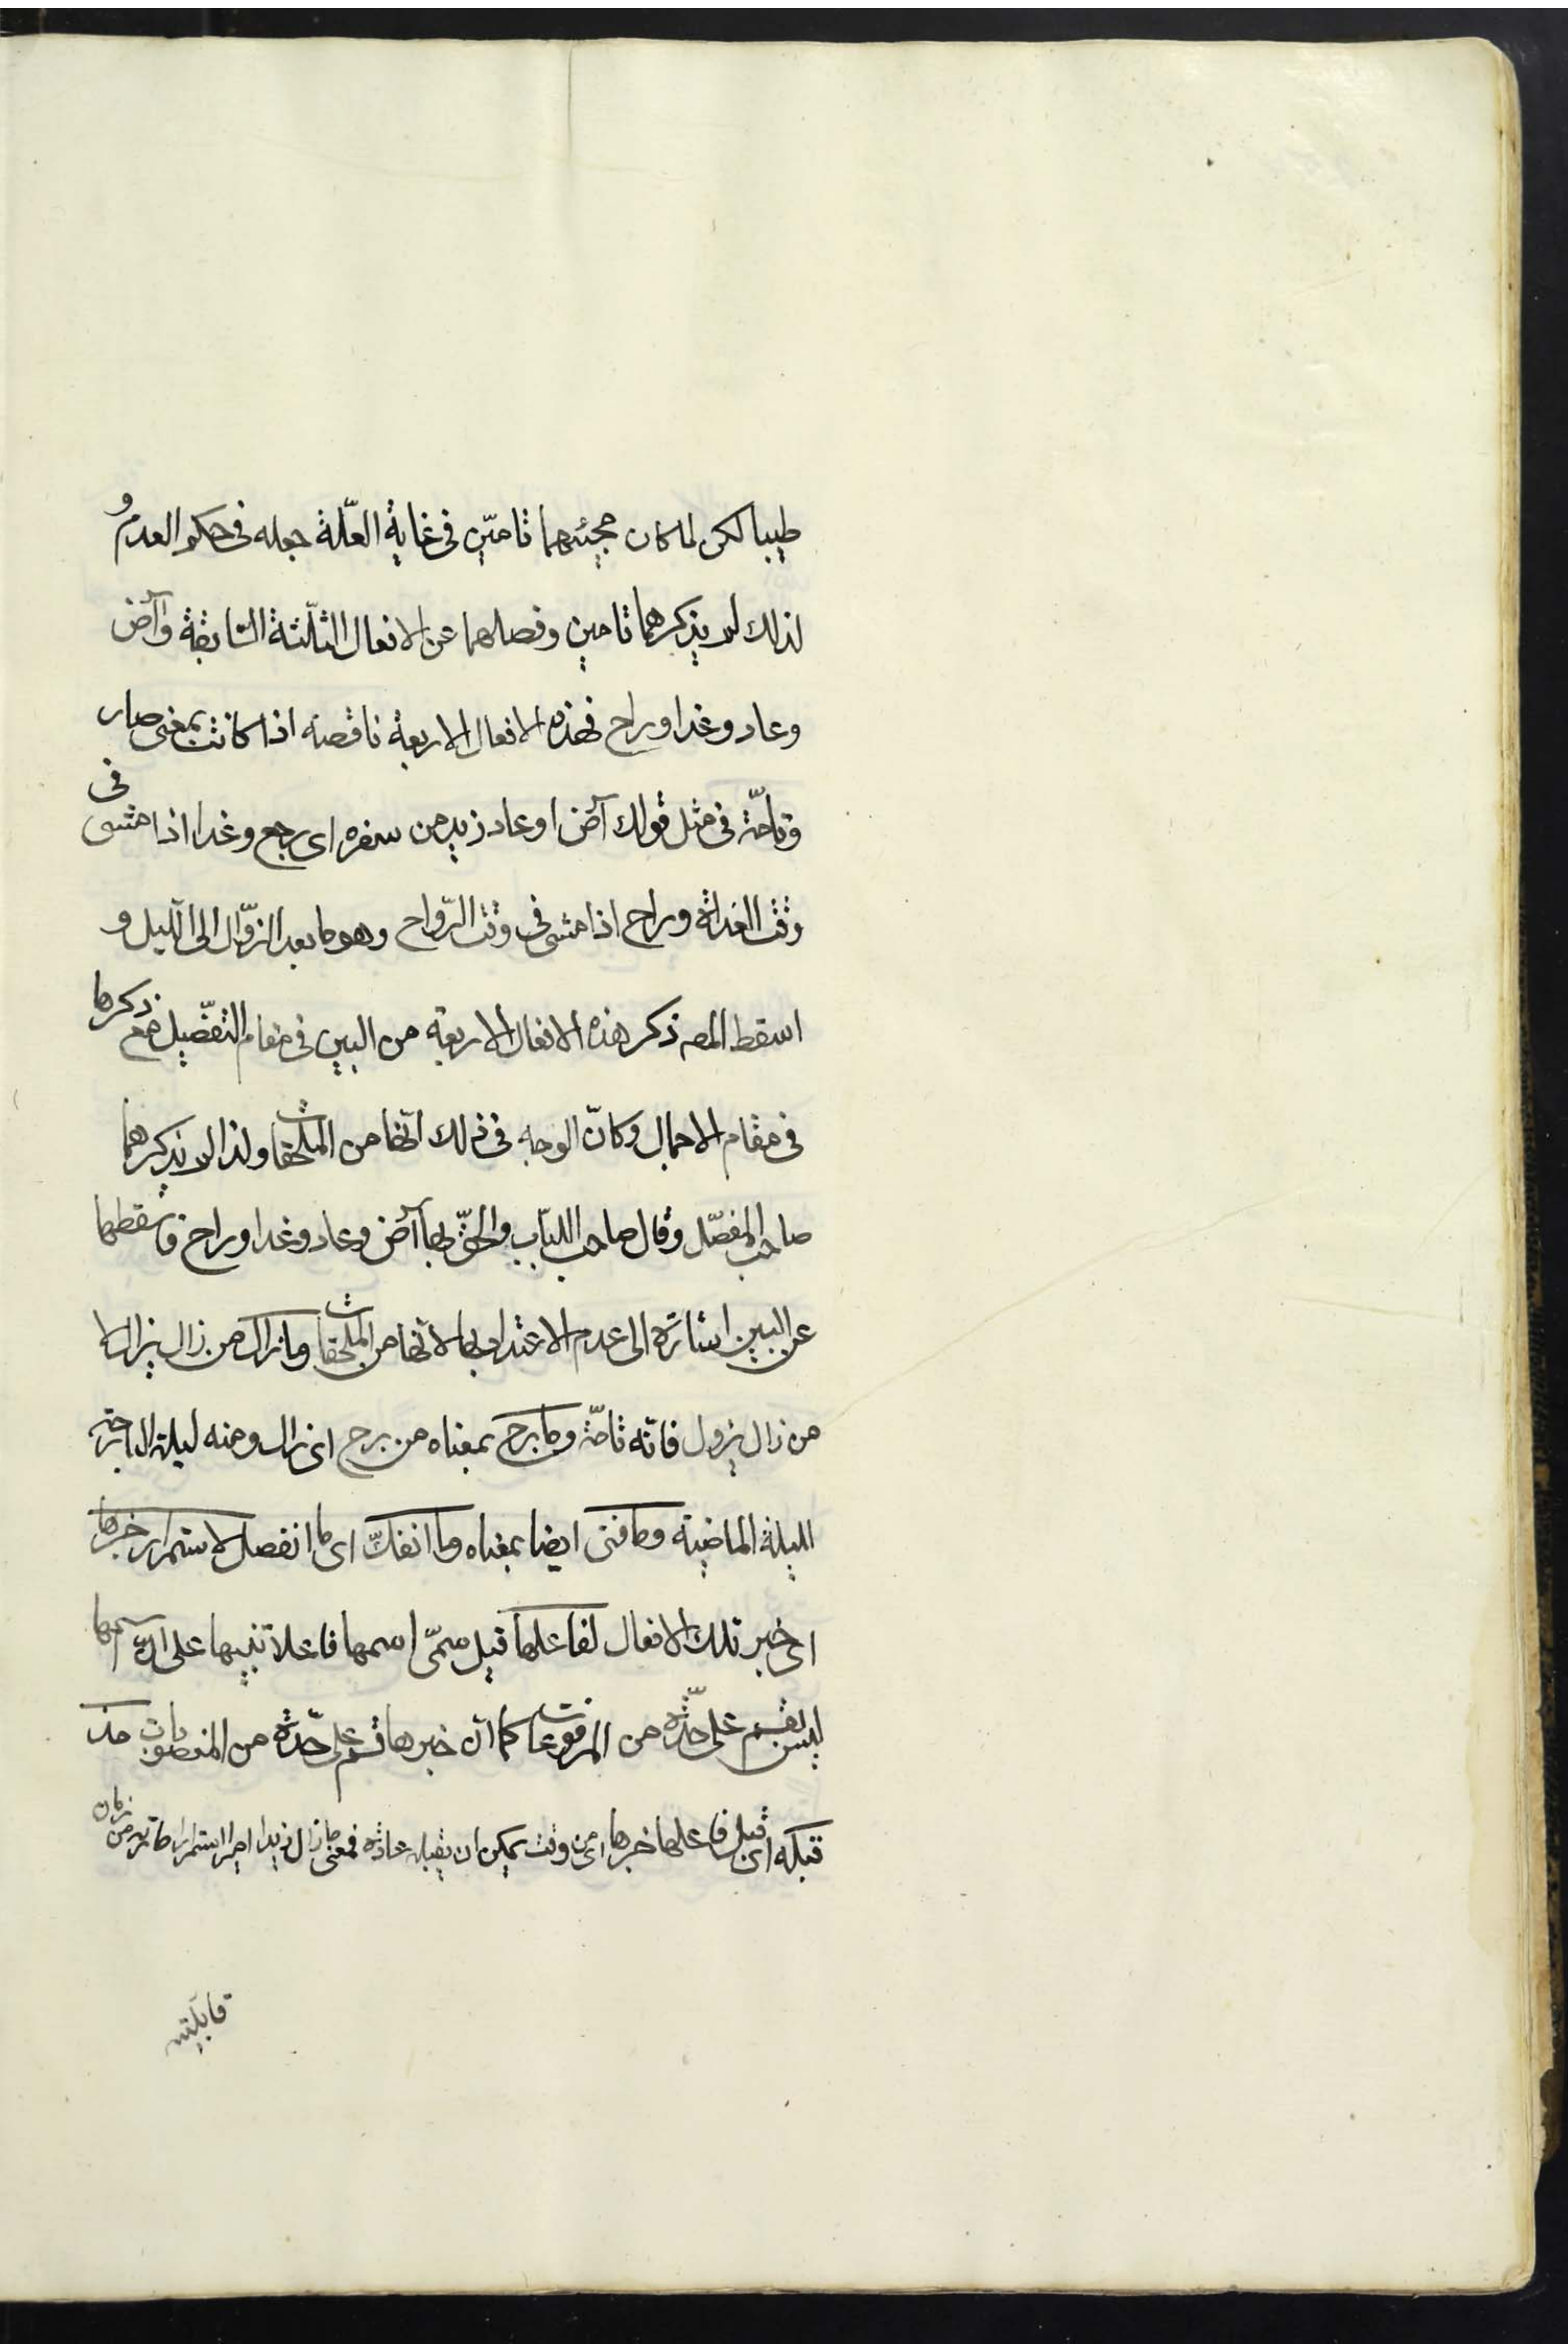 طيبا لكن لما كان مجيئهما تامّين فى غاية العلّة جعله فى حكم العدم و
لذلك لم يذكرهما تامين وفصلهما عن الافعال الثلثة السّابقة وآض
وعاد وغدا وراح فهذه الافعال الاربعة ناقصة اذا كانت بمعنى صار
وتامّة فى مثل قولك آض او عاد زيد من سفره اى رجع وغدا اذا مشى فى
وقت الغداة وراح اذا مشى فى وقت الرّواح وهو ما بعد الزّوال الى اللّيل و
اسقط المص ذكر هذه الافعال الاربعة من البين فى مقام التفصيل مع ذكرها
فى مقام الاجمال وكانّ الوجه فى ذلك انّها من الملحقات ولذا لم يذكرهما
صاحب المفصّل وقال صاحب اللباب والحق بها آض وعاد وغدا وراح فاسقطها
عن البين اشارة الى عدم الاعتداد بها لانّها من الملحقات وما زال من زال يزال لا
من زال يزول فانّه تامّة وما برح بمعناه من برح اى زال ومنه ليلة البارحة
الليلة الماضية وما فتى ايضا بمعناه وما انفكّ اى ما انفصل لاستمرار خبرها
اى خبر تلك الافعال لفاعلها قيل سمّى اسمها فاعلا تنبيها على انّ اسمها
ليس بقسم على حدّة من المرفوعات كما انّ خبرها قسم على حدّة من المنصوبات مذ
قبله اى قبل فاعلها خبرها اى من وقت يمكن ان يقبله عادة فمعنى ما زال زيد اميرا استمرار امارته من زمان
قابليته